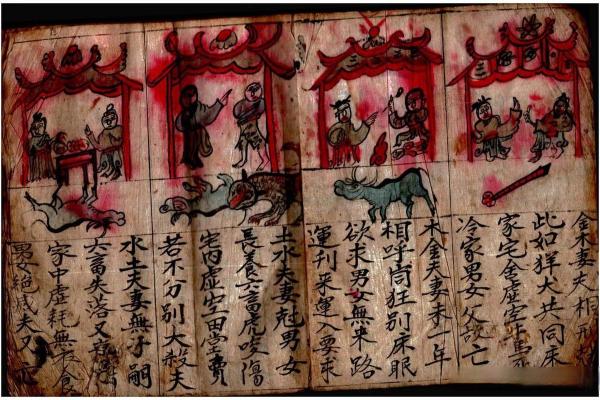 金木妻夫相刑
此如犬共同床
家宅金虛空牛馬死
冷家男女父亡
木金夫妻未一年
相呼狂別床眠
欲求男女無来路
運刊来運入要求
土水夫妻尅男女
長養六畜虎咬傷
宅内虛空田宅費
若不分別大殺夫
水土夫妻無子嗣
六畜失落又
家中虛耗無衣食
男女絕滅夫又